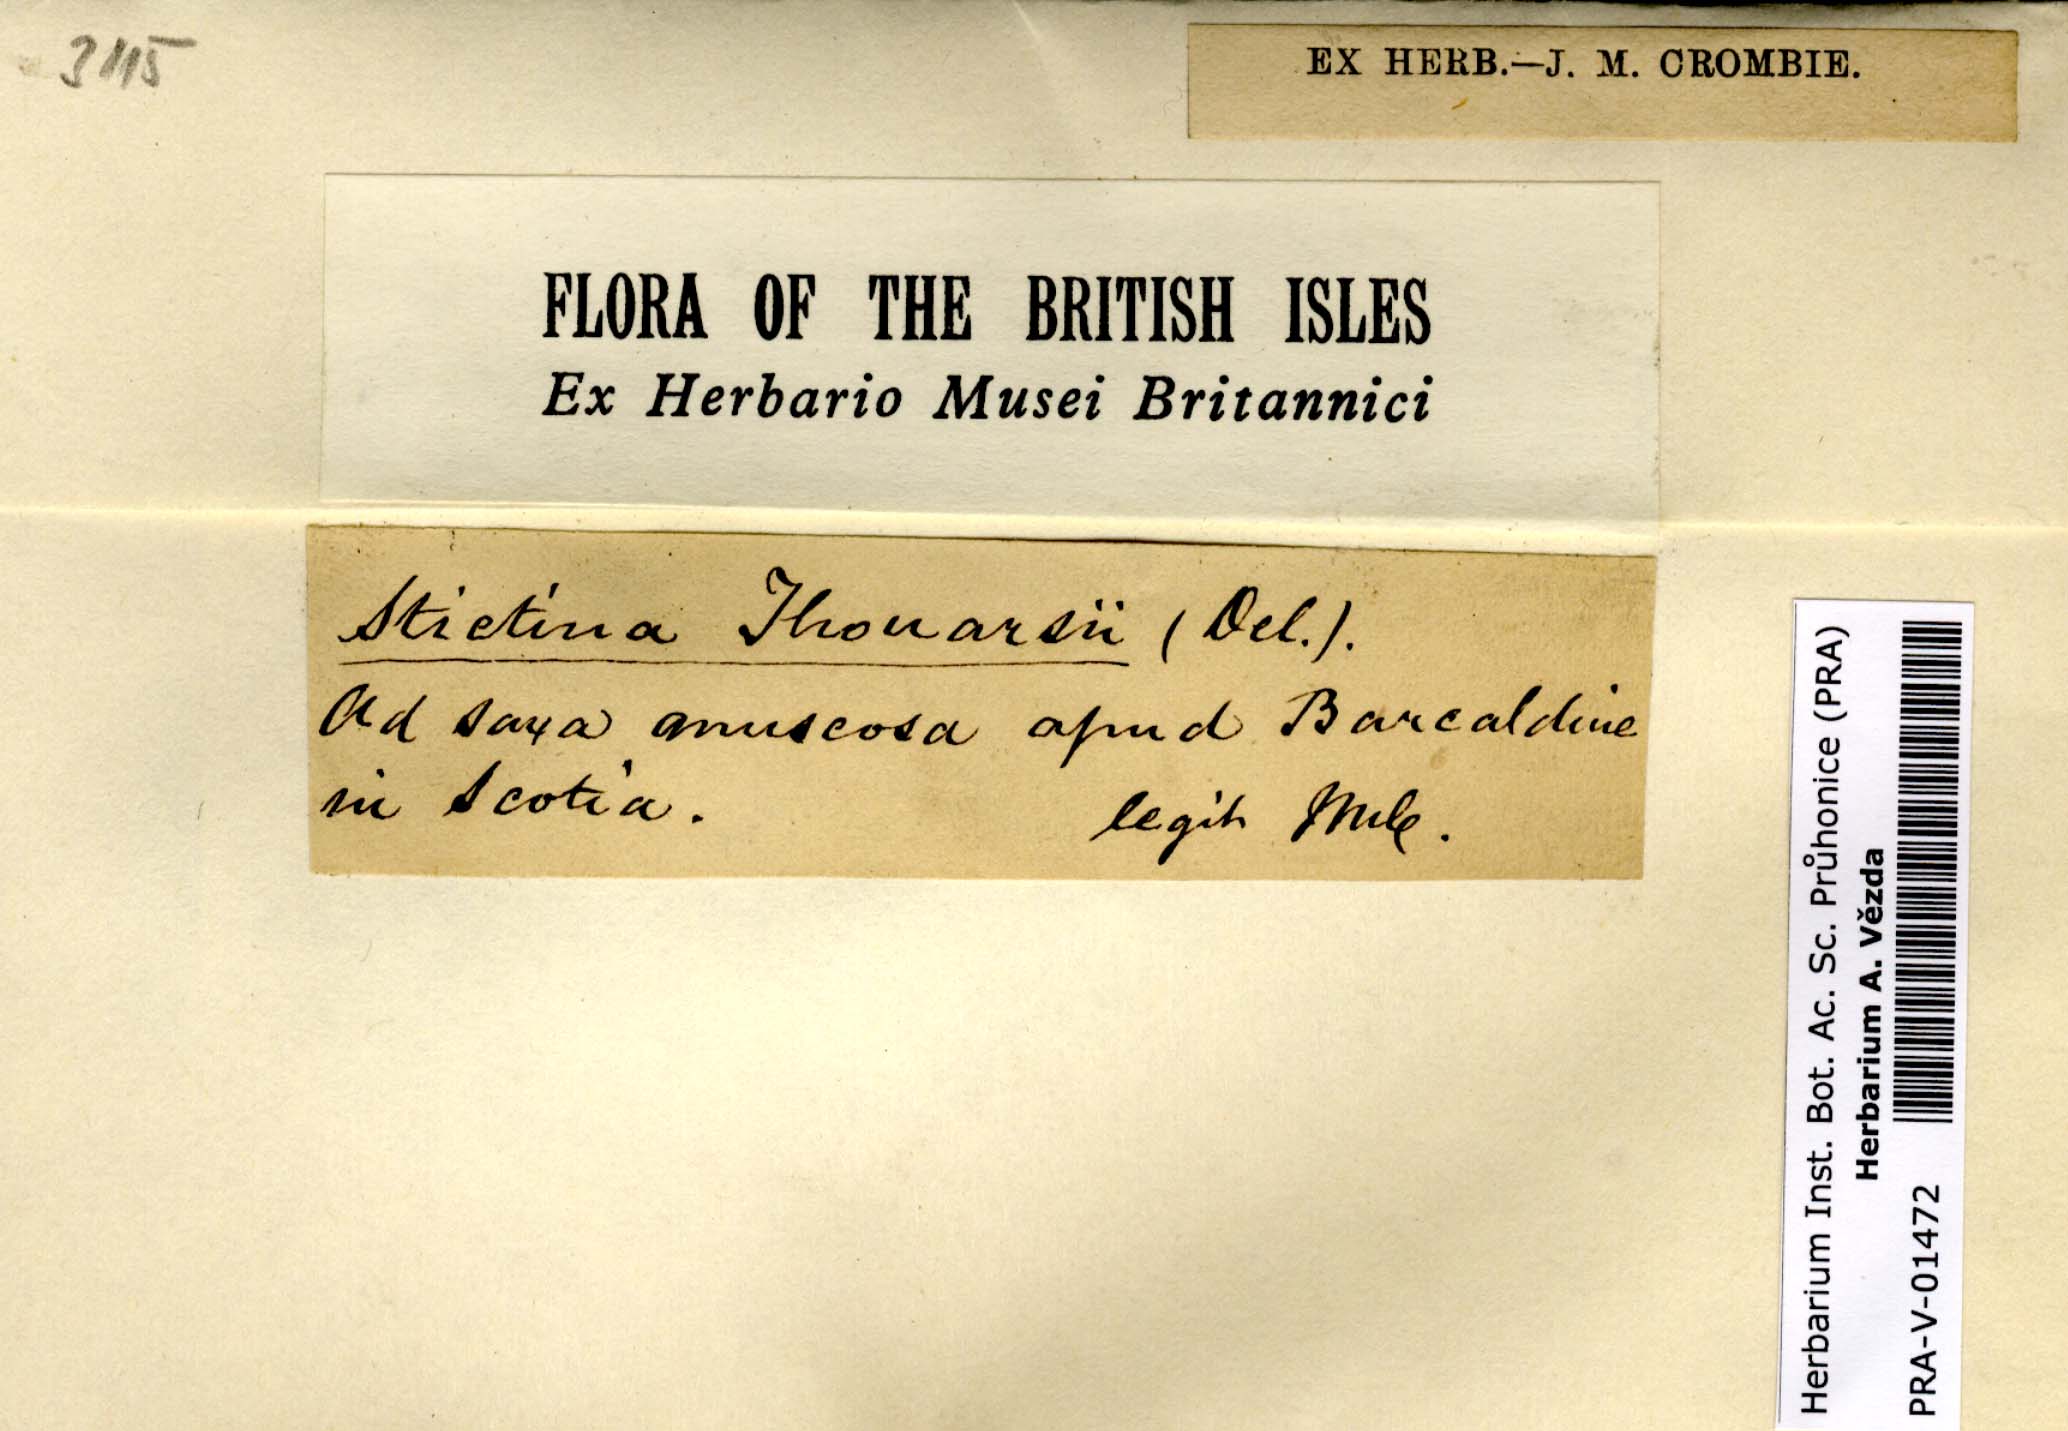 3115
EX HERB.—J. M. CROMBIE.
FLORA OF THE BRITISH ISLES
Ex Herbario Musei Britannici
Stictina Thouarsii (Del.).
Ad saxa muscosa apud Barcaldine
in Scotia.
legit
Herbarium Inst. Bot. Ac. Sc. Průhonice (PRA)
Herbarium A. Vězda
PRA-V-01472